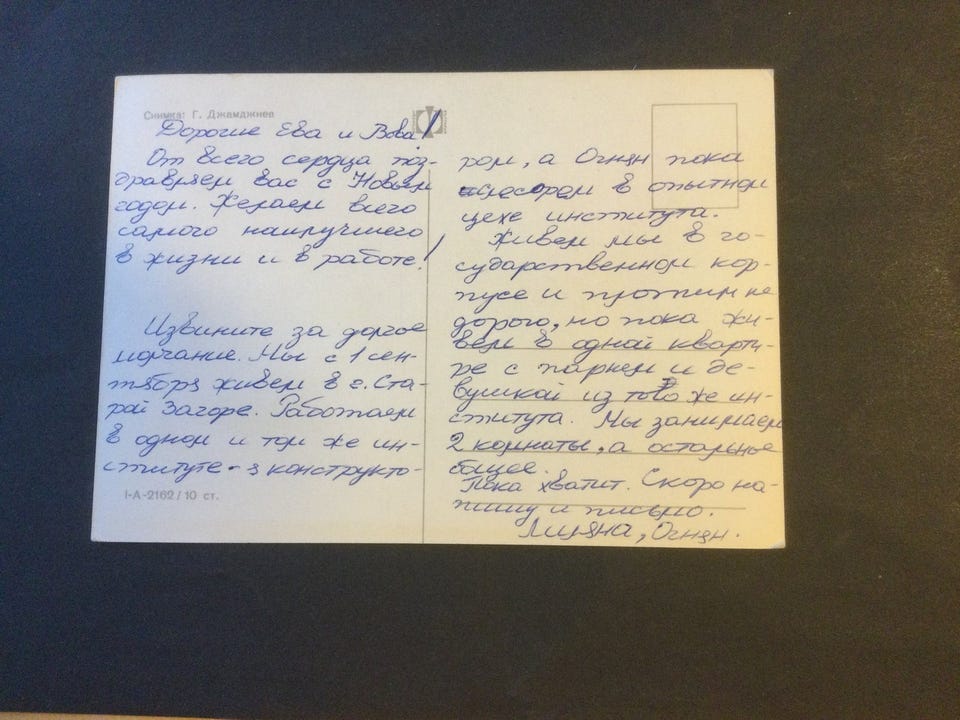 Снимка: Г. Джамджиев
Дорогие Ева и Вова!
От всего сердца поз-
дравляем вас с Новым
годом. Желаем всего
самого наилучшего
в жизни и в работе!
Извините за долгое
молчание. Мы с 1 сен-
тября живем в г. Ста-
рой Загоре. Работаем
в одном и том же ин-
ституте - я конструкто-
I-A-2162/10 ст.
ром, а Огнян пока
в опытном
цехе института.
Живем мы в го-
сударственном кор-
пусе и платим не
дорого, но пока жи-
вем в одной кварти-
ре с парнем и де-
вушкой из того же ин-
ститута. Мы занимаем
2 комнаты, а остальные
общее.
Пока хватит. Скоро на-
пишу и письмо.
Огнян.